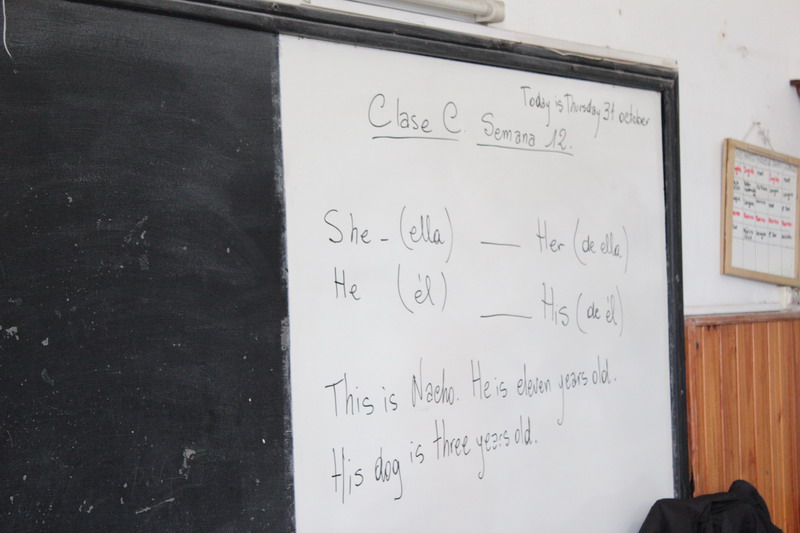 Today is Thursday 31 october
Clase C. Semana 12.
She - (ella) ___ Her (de ella)
He (él) ___ His (de él)
This is Nacho. He is eleven years old.
His dog is three years old.